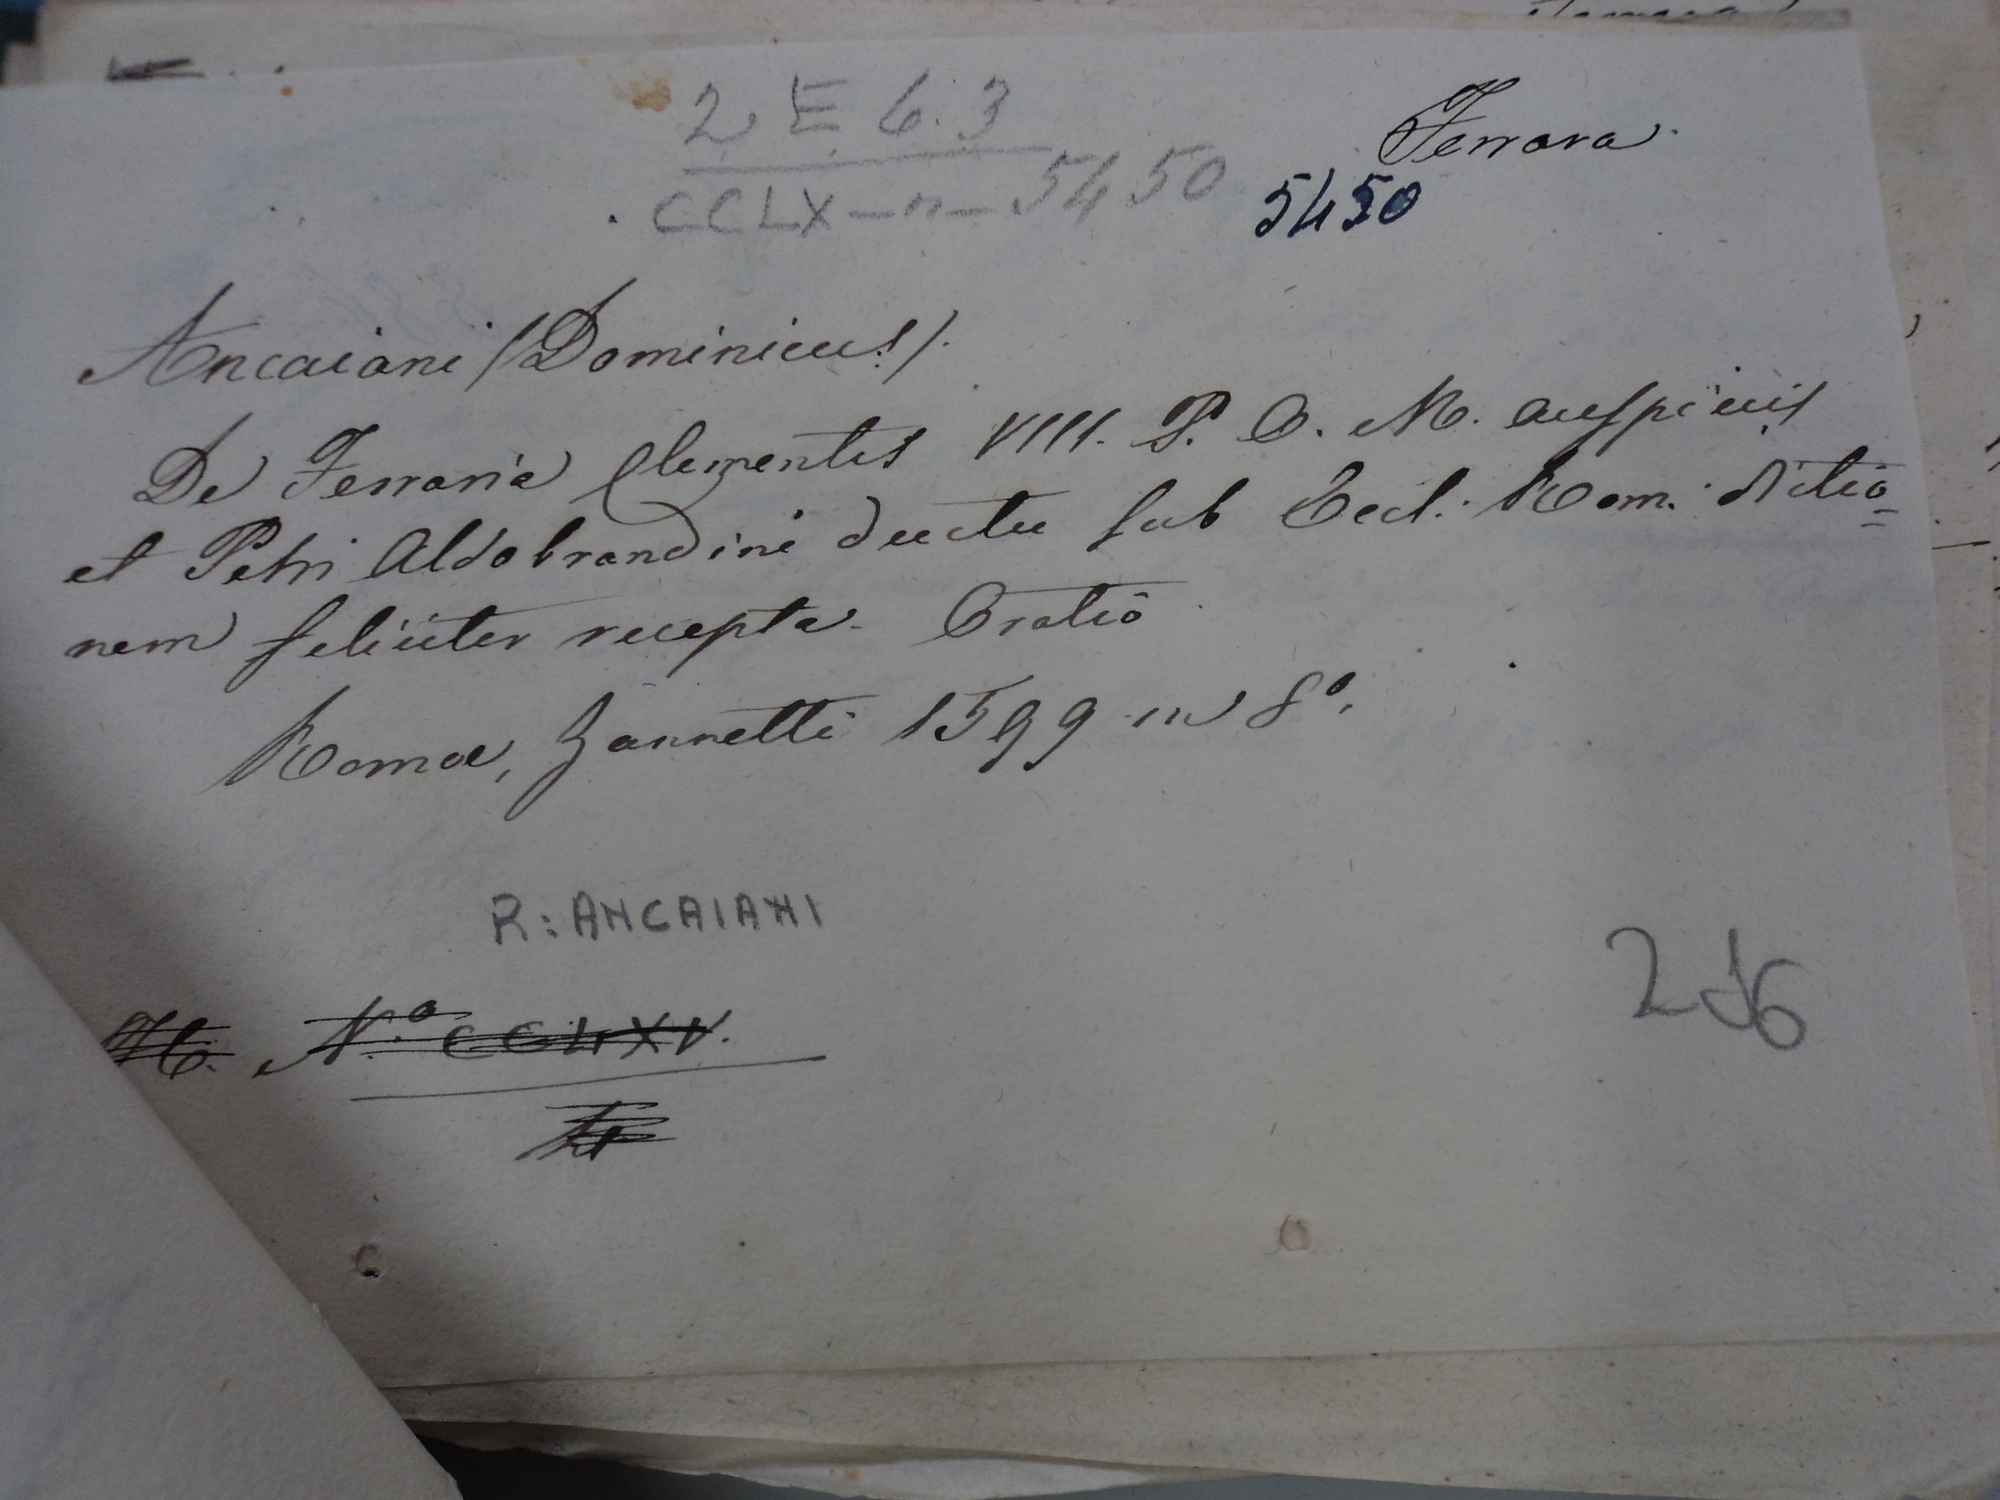 2 E 6.3
Ferrara.
CCLX - n - 5450
5450
Ancaiani (Dominicus).
De Ferraria Clementis VIII. P. O. M. auspiciis
et Petri Aldobrandini ductu sub Eccl. Rom. ditio=
nem feliciter recepta. Oratio
Romae, Zannetti 1599 in 8°.
R: ANCAIANI
N.° CCLXV.